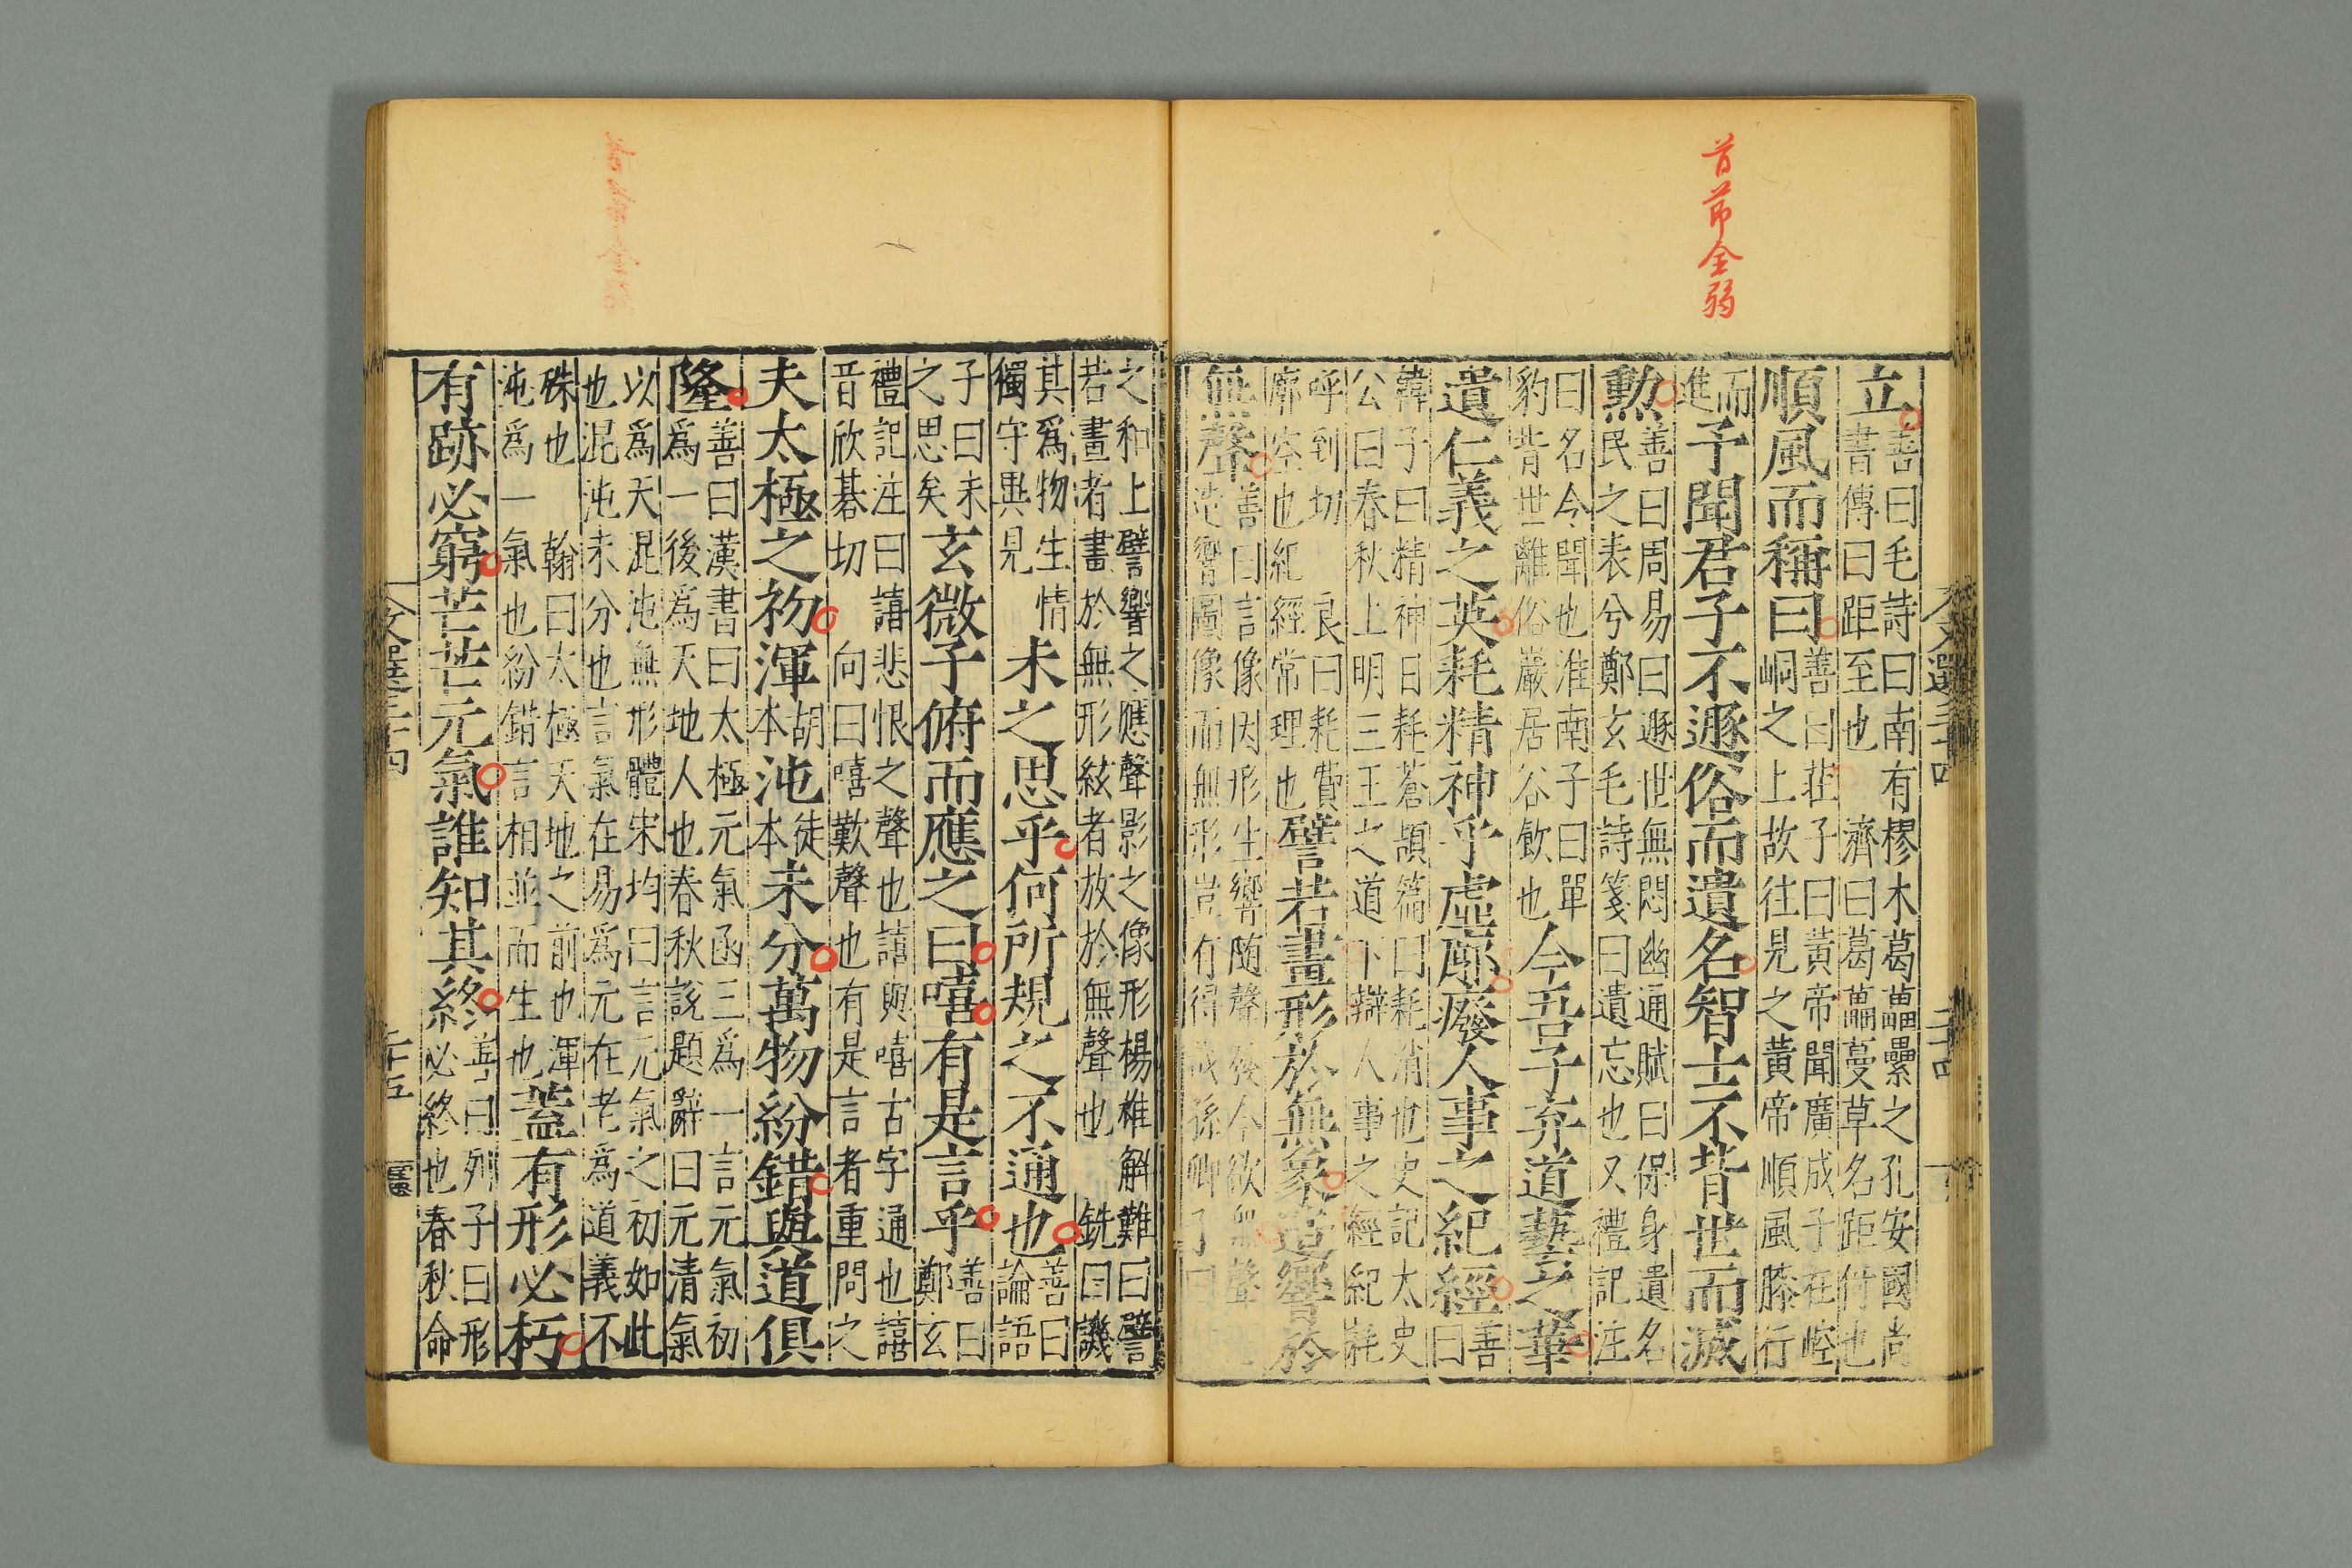 首節全弱
立善曰毛詩曰南有樛木葛藟纍之孔安國尚
書傳曰距至也 濟曰葛藟蔓草名距付也
順風而稱曰善曰莊子曰黃帝聞廣成子在崆
峒之上故往見之黃帝順風膝行
而進予聞君子不遯俗而遺名智士不背世而滅
勲善曰周易曰遯世無悶幽通賦曰保身遺名
民之表兮鄭玄毛詩箋曰遺忘也又禮記注
曰名今聞也淮南子曰單
豹背世離俗巖居谷飲也今吾子弃道藝之華
遺仁義之英耗精神乎虛廓廢人事之紀經善曰
韓子曰精神日耗蒼頡篇曰耗消也史記太史
公曰春秋上明三王之道下辯人事之經紀耗
呼到切 良曰耗費
廓空也紀經常理也譬若畫形於無象造響於
無聲善曰言像因形生響隨聲發今欲無聲
造響圖像而無形豈有得哉孫卿子曰
文選三十四
二十四
之和上譬響之應聲影之像形楊雄解難曰譬
若畫者畫於無形絃者放於無聲也 銑曰譏
其爲物生情
獨守異見未之思乎何所規之不通也善曰論語
子曰未
之思矣玄微子俯而應之曰嘻有是言乎善曰鄭玄
禮記注曰譆悲恨之聲也譆與嘻古字通也譆
音欣碁切 向曰嘻歎聲也有是言者重問之
夫太極之初渾胡本沌徒本未分萬物紛錯與道俱
隆善曰漢書曰太極元氣函三爲一言元氣初
爲一後爲天地人也春秋說題辭曰元清氣
以爲天混沌無形體宋均曰言元氣之初如此
也混沌未分也言氣在易爲元在老爲道義不
殊也 翰曰太極天地之前也渾
沌爲一氣也紛錯言相並而生也蓋有形必朽
有跡必窮芒芒元氣誰知其終善曰列子曰形
必終也春秋命
文選三十四
二十五